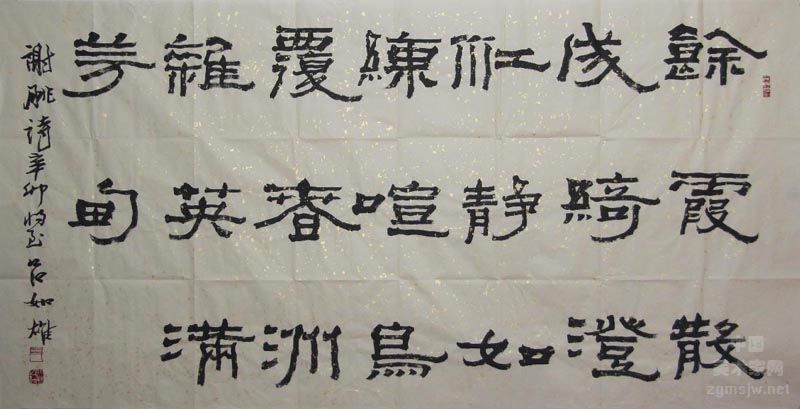 餘霞散
成綺澄
江静如
練喧鳥
覆春洲
雜英满
芳甸
謝朓詩辛卯将至吕如雄
中国
美术家网
zgmsjw.net